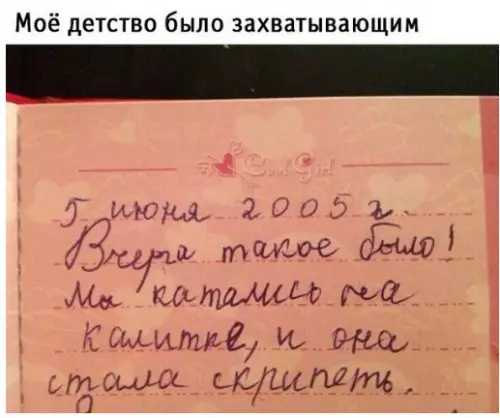 Моё детство было захватывающим
Cool Girl
5 июня 2005 г.
Вчера такое было!
Мы катались на
калитке, и она
стала скрипеть.